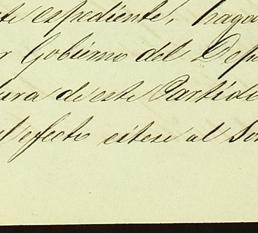 te espediente, haga
r Gobierno del Depa
ura de este Partido
l efecto citese al Se